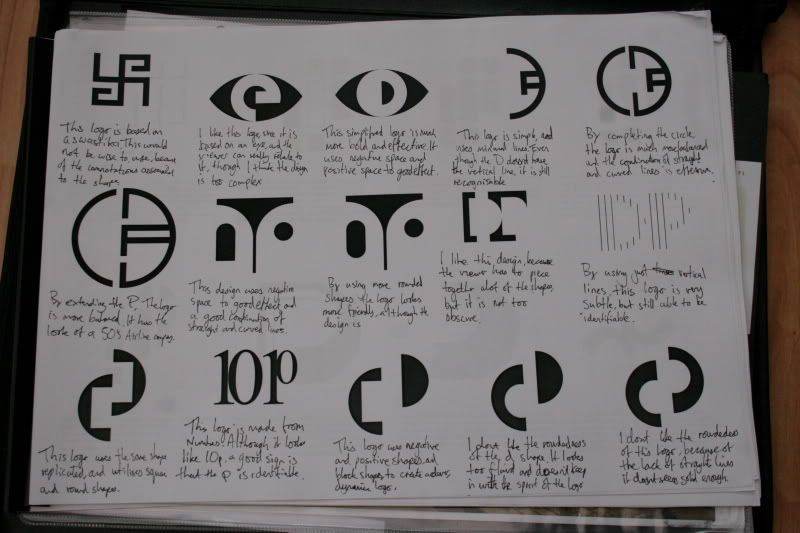 This logo is based on
a swastika. This would
not be wise to use, because
of the connotations
to the shape.
I like this logo, since it is
based on an eye, and the
viewer can really relate to
it, though I think the design
is too complex
This simplified logo is much
more bold and effective. It
uses negative space and
positive space to good effect.
This logo is simple, and
uses minimal lines. Even
though the D doesnt have
the vertical line, it is still
recognisable
By completing the circle,
the logo is much more balanced
and the combination of straight
and curved lines is effective.
By extending the P, the logo
is more balanced. It has the
look of a 50s Airline company.
This design uses negative
space to good effect and
a good combination of
straight and curved lines.
By using more rounded
shapes the logo looks
more friendly, although the
design is
I like this design, because
the viewer has to piece
together alot of the shapes,
but it is not too
obscure.
By using just vertical
lines, this logo is very
subtle, but still able to be
identifiable.
101p
This logo uses the same shape
replicated, and utilises square
and round shapes.
This logo is made from
Numbers. Although it looks
like 10p, a good sign is
that the P is identifiable.
This logo uses negative
and positive shapes, and
block shapes to create a
dynamic logo.
I dont like the roundedness
of the d shape. It looks
too fluid and doesnt keep
in with the spirit of the logo
I dont like the roundedness
of this logo, because of
the lack of straight lines
it doesnt seem solid enough.